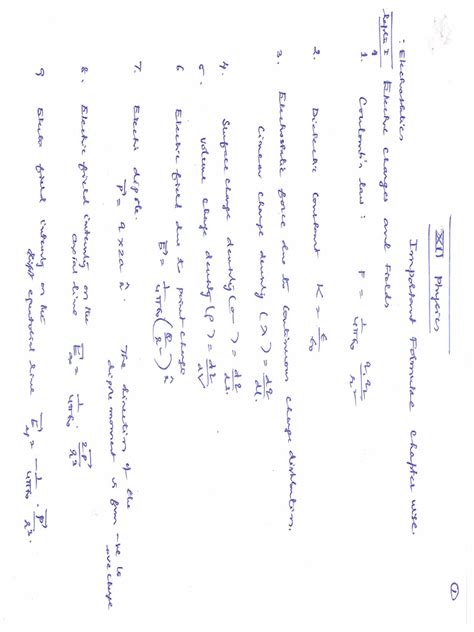 ①
XII Physics
Important Formulae Chapter wise.
: Electrostatics
Electric charges and Fields
1. Coulomb's law : F = 1/4πε₀ q₁q₂/r²
2. Dielectric constant K = ε/ε₀
3. Electrostatic force due to continuous charge distribution.
Linear charge density (λ) = dq/dl.
4. Surface charge density (σ) = dq/ds.
5. Volume charge density (ρ) = dq/dV
6 Electric field due to point charge
E⃗ = 1/4πε₀ (q/r²) r̂
7. Electric dipole.
P⃗ = q x 2a r̂. The direction of the
dipole moment is from -ve to
+ve charge
8. Electric field intensity on the
axial line E⃗ = 1/4πε₀ . 2P⃗/r³
9 Electric field intensity on the
equatorial line E⃗ = -1/4πε₀ . P⃗/r³.